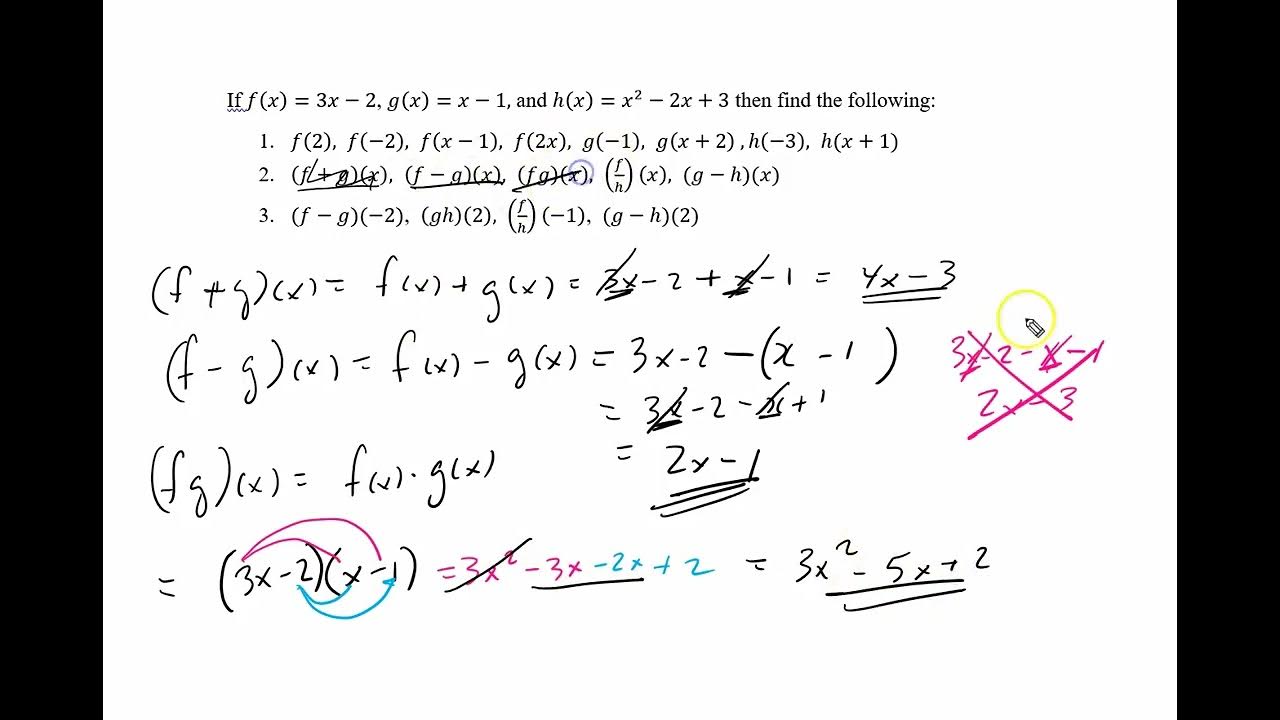 If f(x) = 3x − 2, g(x) = x − 1, and h(x) = x² − 2x + 3 then find the following:
1. f(2), f(−2), f(x − 1), f(2x), g(−1), g(x + 2) ,h(−3), h(x + 1)
2. (f + g)(x), (f − g)(x), (fg)(x), (f/h)(x), (g − h)(x)
3. (f − g)(−2), (gh)(2), (f/h)(−1), (g − h)(2)
(f+g)(x) = f(x) + g(x) = 3x − 2 + x − 1 = 4x − 3
(f − g)(x) = f(x) − g(x) = 3x − 2 − (x − 1)
3x − 2 − x − 1
= 3x − 2 − x + 1
2x − 3
= 2x − 1
(fg)(x) = f(x) · g(x)
= (3x − 2)(x − 1) = 3x² − 3x − 2x + 2 = 3x² − 5x + 2